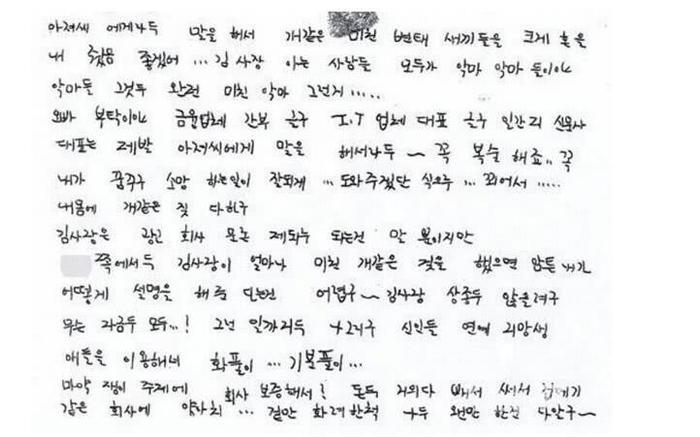 아저씨 에게나두 말을 해서 개같은 미친 변태 새끼들을 크게 혼을
내 줬음 좋겠어 ... 김 사장 아는 사람들 모두가 악마 악마 들이야
악마들 그것두 완전 미친 악마 그런거 .....
오빠 부탁이야 금융업체 간부 글구 I.T 업체 대표 글구 일간지 신문사
대표는 제발 아저씨에게 말을 해서나두 ~ 꼭 복수 해죠.. 꼭
내가 꿈꾸구 소망 하는일이 잘되게 ... 도와주겠단 식으루 ... 꾀어서 .....
내몸에 개같은 짓 다하구
김사장은 광고 회사 모든 제의두 되는건 말 뿐이지만
쪽에서두 김사장이 얼마나 미친 개같은 것을 했으면 암튼 내가
어떻게 설명을 해 줌 되는건 어렵구 ~ 김사장 상종두 않을려구
무는 자금두 모두...! 그런 일까지두 신인들 연예 지망생
애들을 이용해네 화풀이 ... 기분풀이 ...
마약 쟁이 주제에 회사 보증해서! 돈두 거의다 빼서 써서 껍데기
같은 회사에 양아치 ... 겉만 화려한척 나두 왠만 한건 다안구 ~